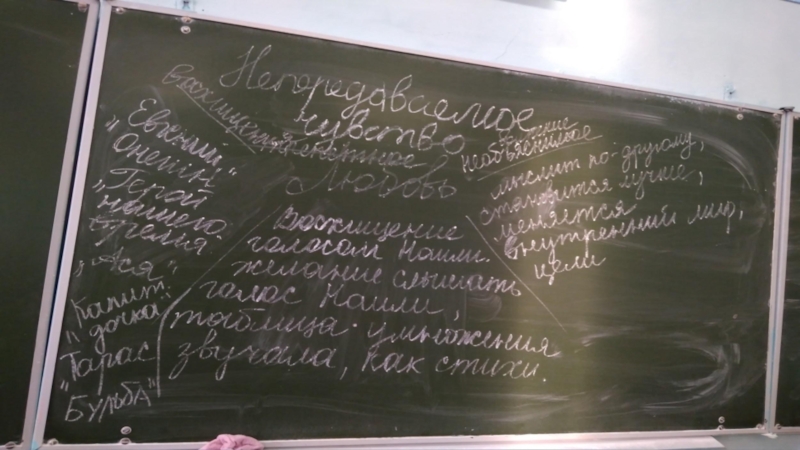 Непередаваемое
чувство
Любовь
необъяснимое
"Евгений
Онегин"
"Герой
нашего
времени"
"Ася"
"Капит.
дочка"
"Тарас
Бульба"
Восхищение
голосом Наили.
желание слышать
голос Наили,
таблица умножения
звучала, как стихи.
мыслит по-другому,
становится лучше,
меняется
внутренний мир,
цели